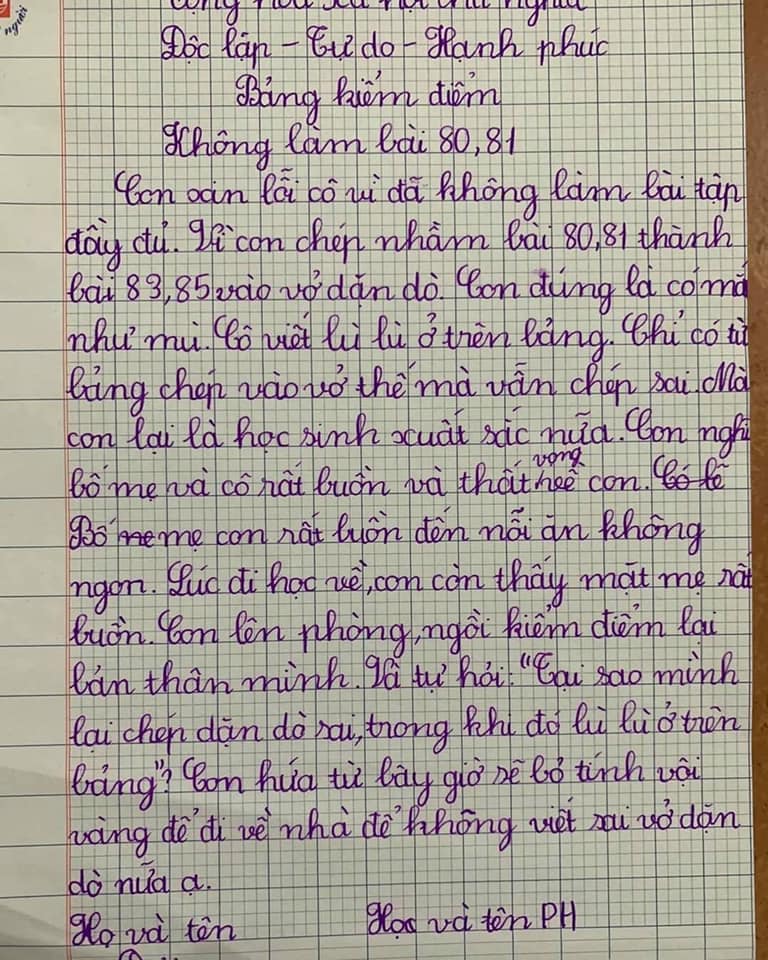 người
Cộng hòa xã hội chủ nghĩa
Độc lập - Tự do - Hạnh phúc
Bảng kiểm điểm
Không làm bài 80,81
Con xin lỗi cô vì đã không làm bài tập
đầy đủ. Vì con chép nhầm bài 80,81 thành
bài 83,85 vào vở dặn dò. Con đúng là có mắ
như mù. Cô viết lù lù ở trên bảng. Chỉ có từ
bảng chép vào vở thế mà vẫn chép sai. Mà
con lại là học sinh xuất sắc nữa. Con nghĩ
vọng
bố mẹ và cô rất buồn và thất hề con. Có lẽ
Bố me mẹ con rất buồn đến nỗi ăn không
ngon. Lúc đi học về, con còn thấy mặt mẹ rất
buồn. Con lên phòng, ngồi kiểm điểm lại
bản thân mình. Và tự hỏi: "Tại sao mình
lại chép dặn dò sai, trong khi đó lù lù ở trên
bảng"? Con hứa từ bây giờ sẽ bỏ tính vội
vàng để đi về nhà để không viết sai vở dặn
dò nữa ạ.
Họ và tên Họ và tên PH